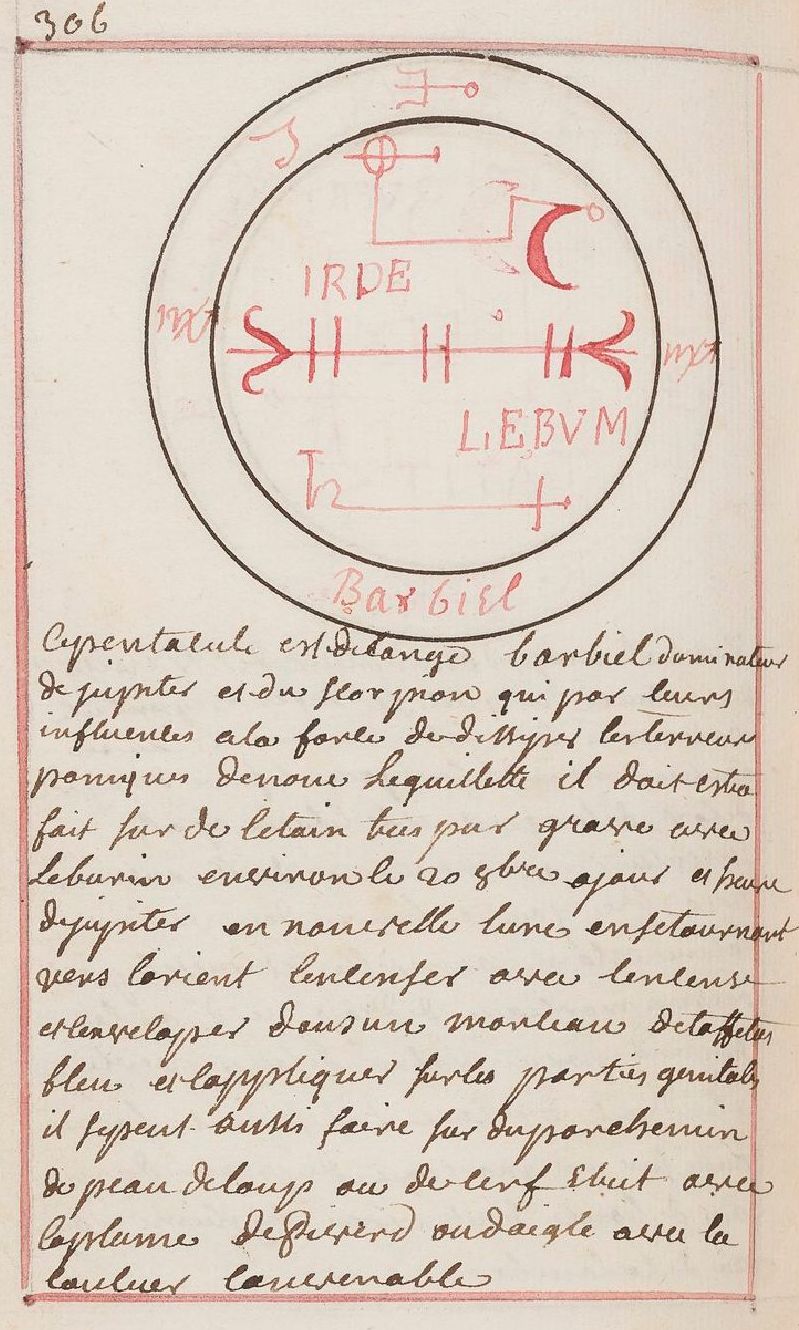 306
IRDE
LEBVM
Barbiel
Ce pentacule est de lange barbiel dominateur
de jupiter et du scorpion qui par leurs
influences a la force de dissiper les terreurs
paniques denoue leguillette il doit estre
fait sur de letain tres pur grave avec
Leburin environ le 20 8bre a jour et heure
de jupiter en nouvelle lune en se tournant
vers lorient lencenser avec lencens
et lenveloper dans un morceau de taffetas
bleu et lappliquer sur les parties genitales
il se peut aussi faire sur du parchemin
de peau de loup ou de cerf avec
laplume ou daigle avec la
couleur convenable